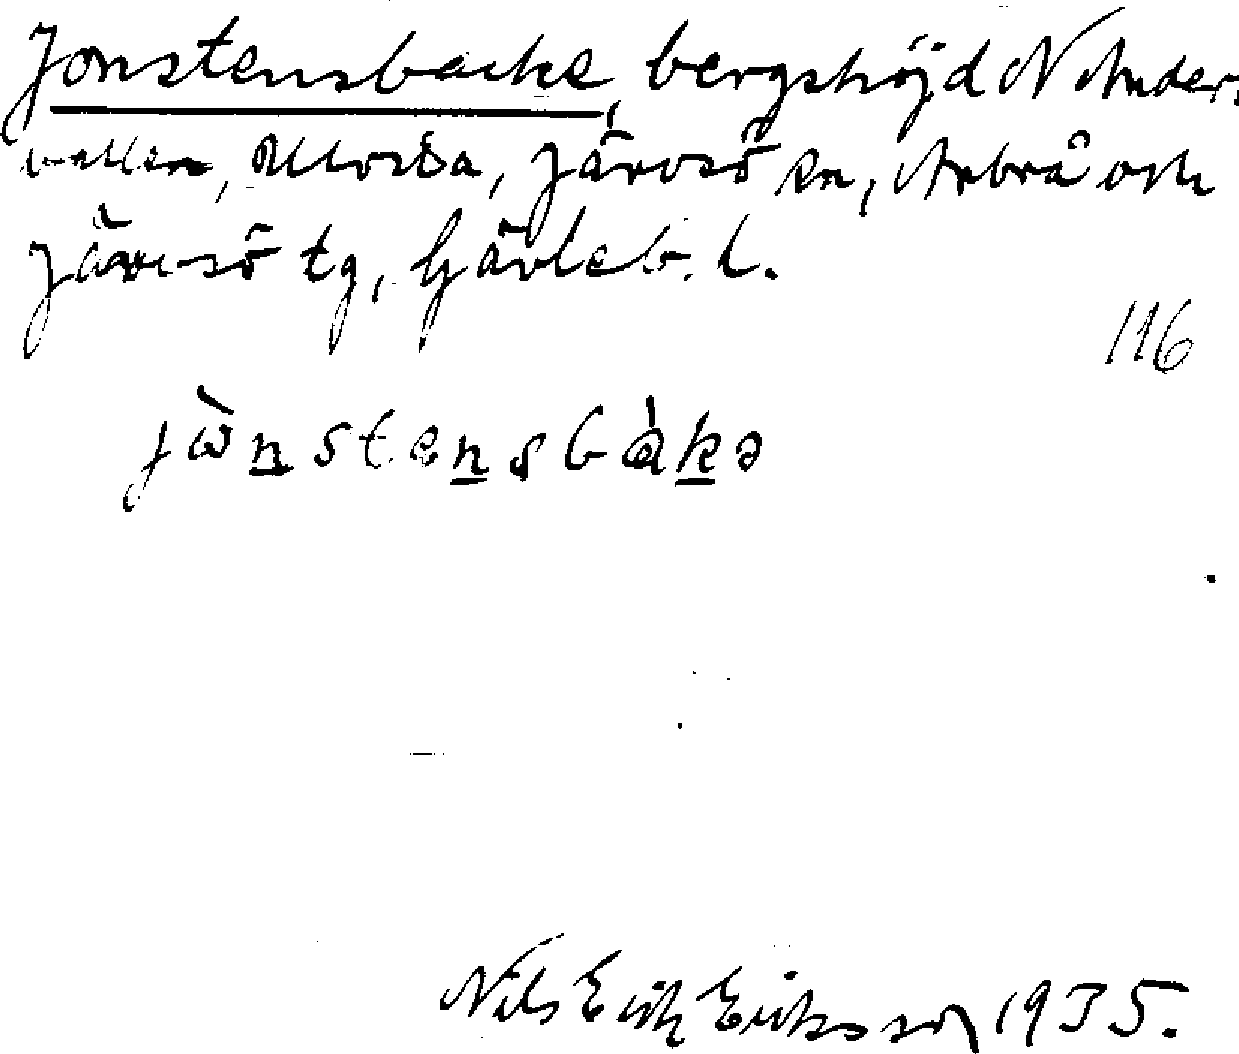 Jonstensbacke, bergshöjd N Anders-
vallen, Ullvsta, Järvsö sn, Arbrå och
Järvsö tg, Gävleb. l.
116
jὼnstensbàkə
Nils Erik Eriksson 1935.